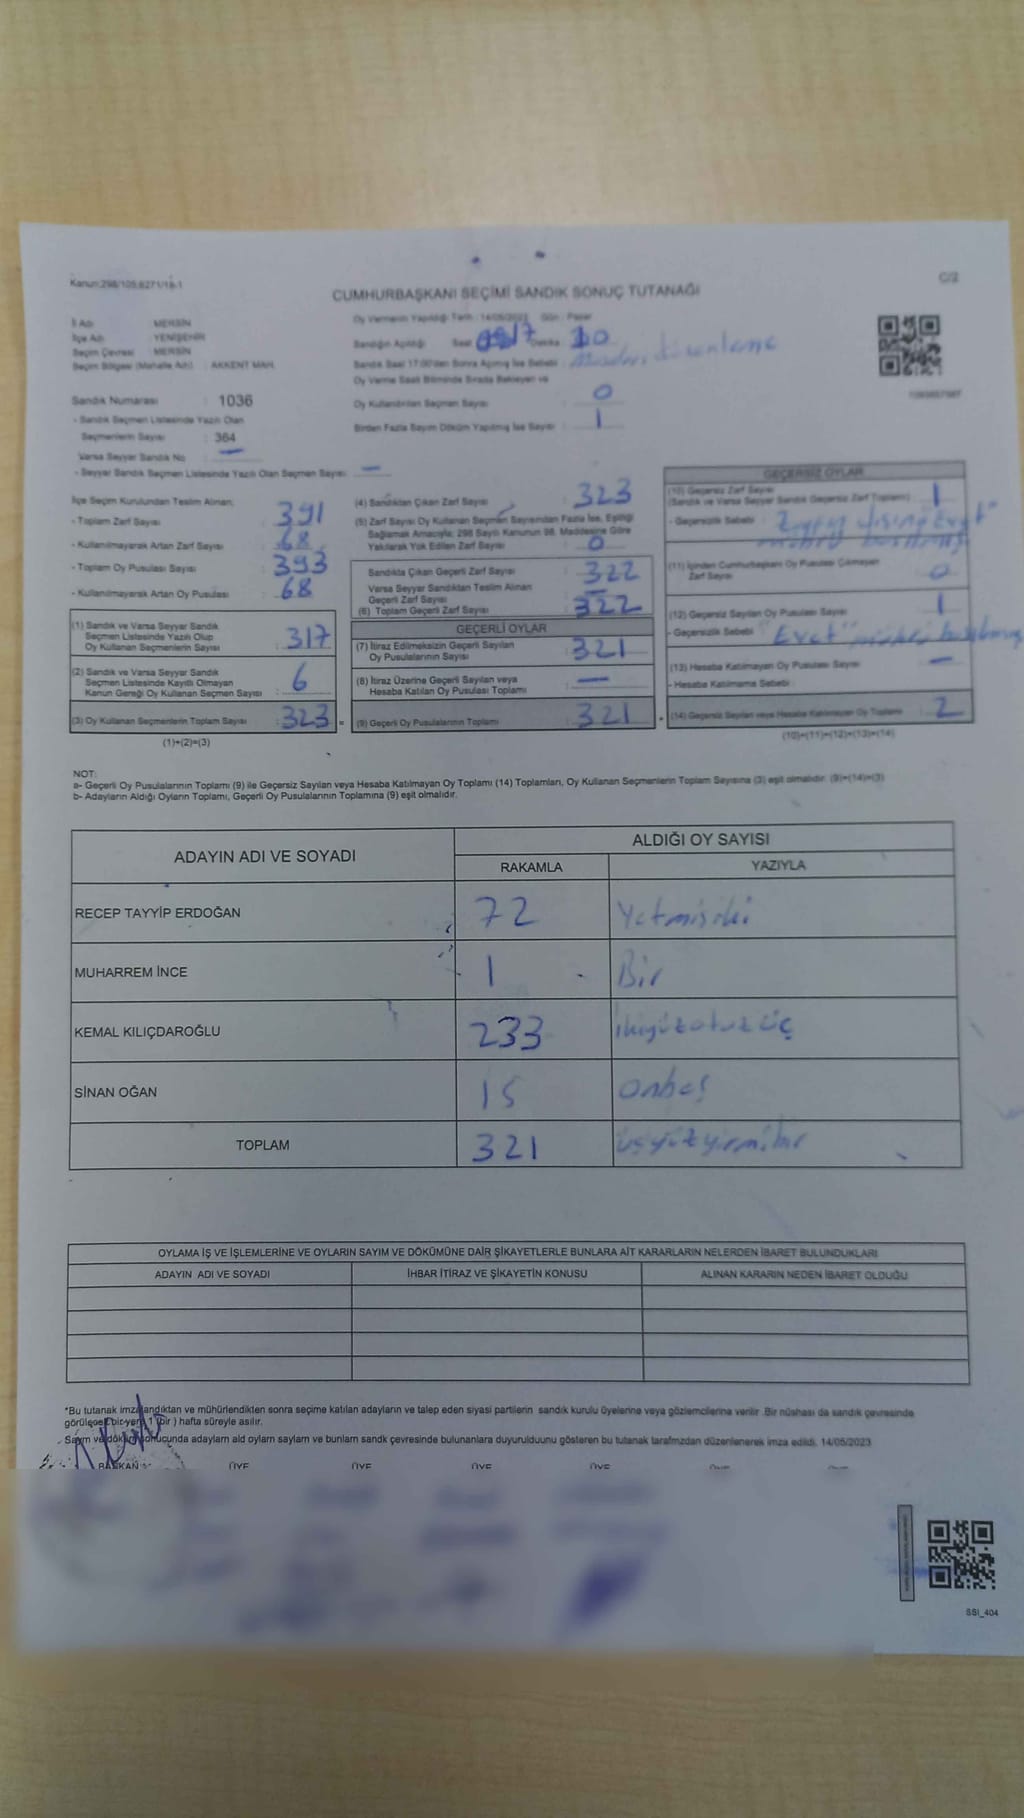 Kanun:298/105,6271/19-1
C/2
CUMHURBAŞKANI SEÇİMİ SANDIK SONUÇ TUTANAĞI
İl Adı : MERSİN
İlçe Adı : YENİŞEHİR
Seçim Çevresi : MERSİN
Seçim Bölgesi (Mahalle Adı) : AKKENT MAH.
Sandık Numarası : 1036
- Sandık Seçmen Listesinde Yazılı Olan
Seçmenlerin Sayısı : 364
Varsa Seyyar Sandık No : —
- Seyyar Sandık Seçmen Listesinde Yazılı Olan Seçmen Sayısı : —
Oy Vermenin Yapıldığı Tarih : 14/05/2023 Gün : Pazar
Sandığın Açıldığı Saat 17 Dakika
Sandık Saat 17:00'den Sonra Açılmış İse Sebebi :
Oy Verme Saati Bitiminde Sırada Bekleyen ve
Oy Kullandırılan Seçmen Sayısı : 0
Birden Fazla Sayım Döküm Yapılmış İse Sayısı : 1
İlçe Seçim Kurulundan Teslim Alınan;
- Toplam Zarf Sayısı : 391
- Kullanılmayarak Artan Zarf Sayısı : 68
- Toplam Oy Pusulası Sayısı : 393
- Kullanılmayarak Artan Oy Pusulası : 68
(1) Sandık ve Varsa Seyyar Sandık
Seçmen Listesinde Yazılı Olup
Oy Kullanan Seçmenlerin Sayısı : 317
(2) Sandık ve Varsa Seyyar Sandık
Seçmen Listesinde Kayıtlı Olmayan
Kanun Gereği Oy Kullanan Seçmen Sayısı : 6
(3) Oy Kullanan Seçmenlerin Toplam Sayısı : 323
(1)+(2)=(3)
=
(4) Sandıktan Çıkan Zarf Sayısı : 323
(5) Zarf Sayısı Oy Kullanan Seçmen Sayısından Fazla İse, Eşitliği
Sağlamak Amacıyla; 298 Sayılı Kanunun 98. Maddesine Göre
Yakılarak Yok Edilen Zarf Sayısı : 0
Sandıkta Çıkan Geçerli Zarf Sayısı : 322
Varsa Seyyar Sandıktan Teslim Alınan
Geçerli Zarf Sayısı : —
(6) Toplam Geçerli Zarf Sayısı : 322
GEÇERLİ OYLAR
(7) İtiraz Edilmeksizin Geçerli Sayılan
Oy Pusulalarının Sayısı : 321
(8) İtiraz Üzerine Geçerli Sayılan veya
Hesaba Katılan Oy Pusulası Toplamı : —
(9) Geçerli Oy Pusulalarının Toplamı : 321
+
GEÇERSİZ OYLAR
(10) Geçersiz Zarf Sayısı
(Sandık ve Varsa Seyyar Sandık Geçersiz Zarf Toplamı) : 1
- Geçersizlik Sebebi :
(11) İçinden Cumhurbaşkanı Oy Pusulası Çıkmayan
Zarf Sayısı : 0
(12) Geçersiz Sayılan Oy Pusulası Sayısı : 1
- Geçersizlik Sebebi : "Evet"
(13) Hesaba Katılmayan Oy Pusulası Sayısı : —
- Hesaba Katılmama Sebebi :
(14) Geçersiz Sayılan veya Hesaba Katılmayan Oy Toplamı : 2
(10)+(11)+(12)+(13)=(14)
NOT:
a- Geçerli Oy Pusulalarının Toplamı (9) ile Geçersiz Sayılan veya Hesaba Katılmayan Oy Toplamı (14) Toplamları, Oy Kullanan Seçmenlerin Toplam Sayısına (3) eşit olmalıdır. (9)+(14)=(3)
b- Adayların Aldığı Oyların Toplamı, Geçerli Oy Pusulalarının Toplamına (9) eşit olmalıdır.
ADAYIN ADI VE SOYADI
ALDIĞI OY SAYISI
RAKAMLA YAZIYLA
RECEP TAYYİP ERDOĞAN 72 Yetmişiki
MUHARREM İNCE 1 Bir
KEMAL KILIÇDAROĞLU 233 ikiyüzotuzüç
SİNAN OĞAN 15 onbeş
TOPLAM 321 üçyüzyirmibir
OYLAMA İŞ VE İŞLEMLERİNE VE OYLARIN SAYIM VE DÖKÜMÜNE DAİR ŞİKAYETLERLE BUNLARA AİT KARARLARIN NELERDEN İBARET BULUNDUKLARI
ADAYIN ADI VE SOYADI İHBAR İTİRAZ VE ŞİKAYETİN KONUSU ALINAN KARARIN NEDEN İBARET OLDUĞU
*Bu tutanak imzalandıktan ve mühürlendikten sonra seçime katılan adayların ve talep eden siyasi partilerin sandık kurulu üyelerine veya gözlemcilerine verilir. Bir nüshası da sandık çevresinde
görülecek bir yere 1 (bir) hafta süreyle asılır.
Sayım ve döküm sonucunda adayların ald oyların sayların ve bunların sandk çevresinde bulunanlara duyurulduunu gösteren bu tutanak tarafmzdan düzenlenerek imza edildi. 14/05/2023
BAŞKAN ÜYE ÜYE ÜYE ÜYE ÜYE ÜYE
SSI_404